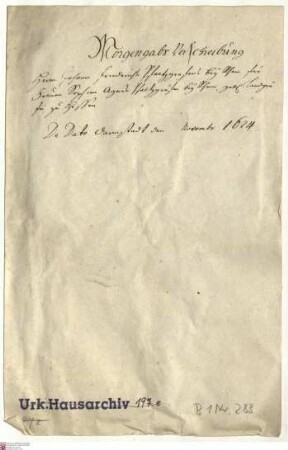 Morgengabs Verschreibung
Herrn Johann Friederichs Pfaltzgrafens bey Rhein für
Frauen Sophien Agnes Pfaltzgräfin bey Rhein, geb. Landgrä
fin zu Hessen
De Dato Darmstadt den November 1624
Urk.Hausarchiv 197
B 1 Nr. 288